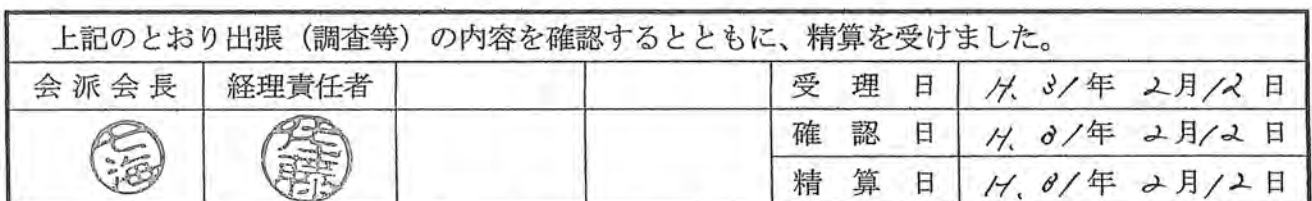 上記のとおり出張（調査等）の内容を確認するとともに、精算を受けました。
会派会長 経理責任者 受理日 H. 31年 2月12日
確認日 H. 31年 2月12日
精算日 H. 31年 2月12日